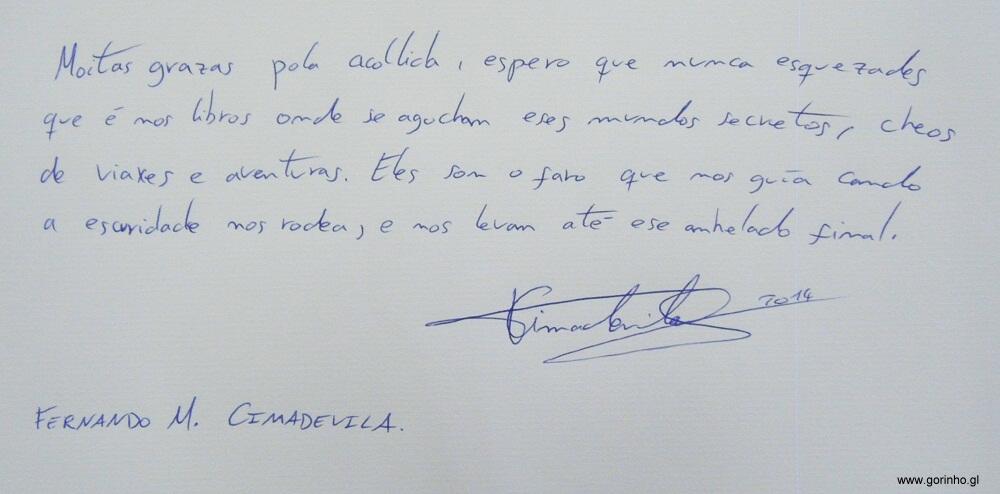 Moitas grazas pola acollida, espero que nunca esquezades
que é nos libros onde se agochan eses mundos secretos, cheos
de viaxes e aventuras. Eles son o faro que nos guía cando
a escuridade nos rodea, e nos levan até ese anhelado final.
Cimadevila 2014
FERNANDO M. CIMADEVILA.
www.gorinho.gl